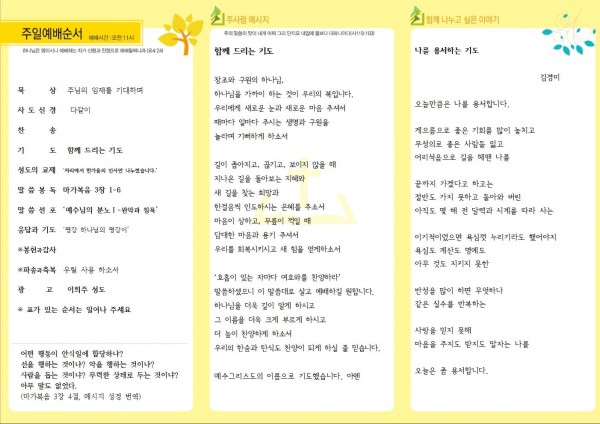 주일예배순서
예배시간 : 오전11시
하나님은 영이시니 예배하는 자가 신령과 진정으로 예배할찌니라 (요4:24)
묵 상 주님의 임재를 기대하며
사 도 신 경 다같이
찬 송
기 도 함께 드리는 기도
성도의 교제 '자리에서 반가움의 인사만 나누겠습니다.'
말 씀 봉 독 마가복음 3장 1-6
말 씀 선 포 '예수님의 분노 I - 완악과 침묵'
응답과 기도 '평강 하나님의 평강이'
※봉헌과감사
※파송과축복 우릴 사용 하소서
광 고 이희주 성도
※ 표가 있는 순서는 일어나 주세요
어떤 행동이 안식일에 합당하냐?
선을 행하는 것이냐? 악을 행하는 것이냐?
사람을 돕는 것이냐? 무력한 상태로 두는 것이냐?
아무 말도 없었다.
(마가복음 3장 4절, 메시지 성경 번역)
주사랑 메시지
주의 말씀의 맛이 내게 어찌 그리 단지요 내입에 꿀보다 더하니이다(시119:103)
함께 드리는 기도
창조와 구원의 하나님,
하나님을 가까이 하는 것이 우리의 복입니다.
우리에게 새로운 눈과 새로운 마음 주셔서
때마다 일마다 주시는 생명과 구원을
놀라며 기뻐하게 하소서
길이 좁아지고, 끊기고, 보이지 않을 때
지나온 길을 돌아보는 지혜와
새 길을 찾는 희망과
한걸음씩 인도하시는 은혜를 주소서
마음이 상하고, 무릎이 꺽일 때
담대한 마음과 용기 주셔서
우리를 회복시키시고 새 힘을 얻게하소서
'호흡이 있는 자마다 여호와를 찬양하라'
말씀하셨으니 이 말씀대로 살고 예배하길 원합니다.
하나님을 더욱 깊이 알게 하시고
그 이름을 더욱 크게 부르게 하시고
더 높이 찬양하게 하소서
우리의 한숨과 탄식도 찬양이 되게 하실 줄 믿습니다.
예수그리스도의 이름으로 기도했습니다. 아멘
함께 나누고 싶은 이야기
나를 용서하는 기도
김경미
오늘만큼은 나를 용서합니다.
게으름으로 좋은 기회를 많이 놓치고
무정의로 좋은 사람들 잃고
어리석음으로 길을 헤맨 나를
끝까지 가겠다고 하고는
절반도 가지 못하고 돌아와 버린
아직도 몇 해 전 달력과 시계를 따라 사는
이기적이었으면 욕심껏 누리기라도 했어야지
욕심도 계산도 명예도
아무 것도 지키지 못한
반성을 많이 하면 무엇하나
같은 실수를 반복하는
사랑을 믿지 못해
마음을 주지도 받지도 말자는 나를
오늘은 좀 용서합니다.